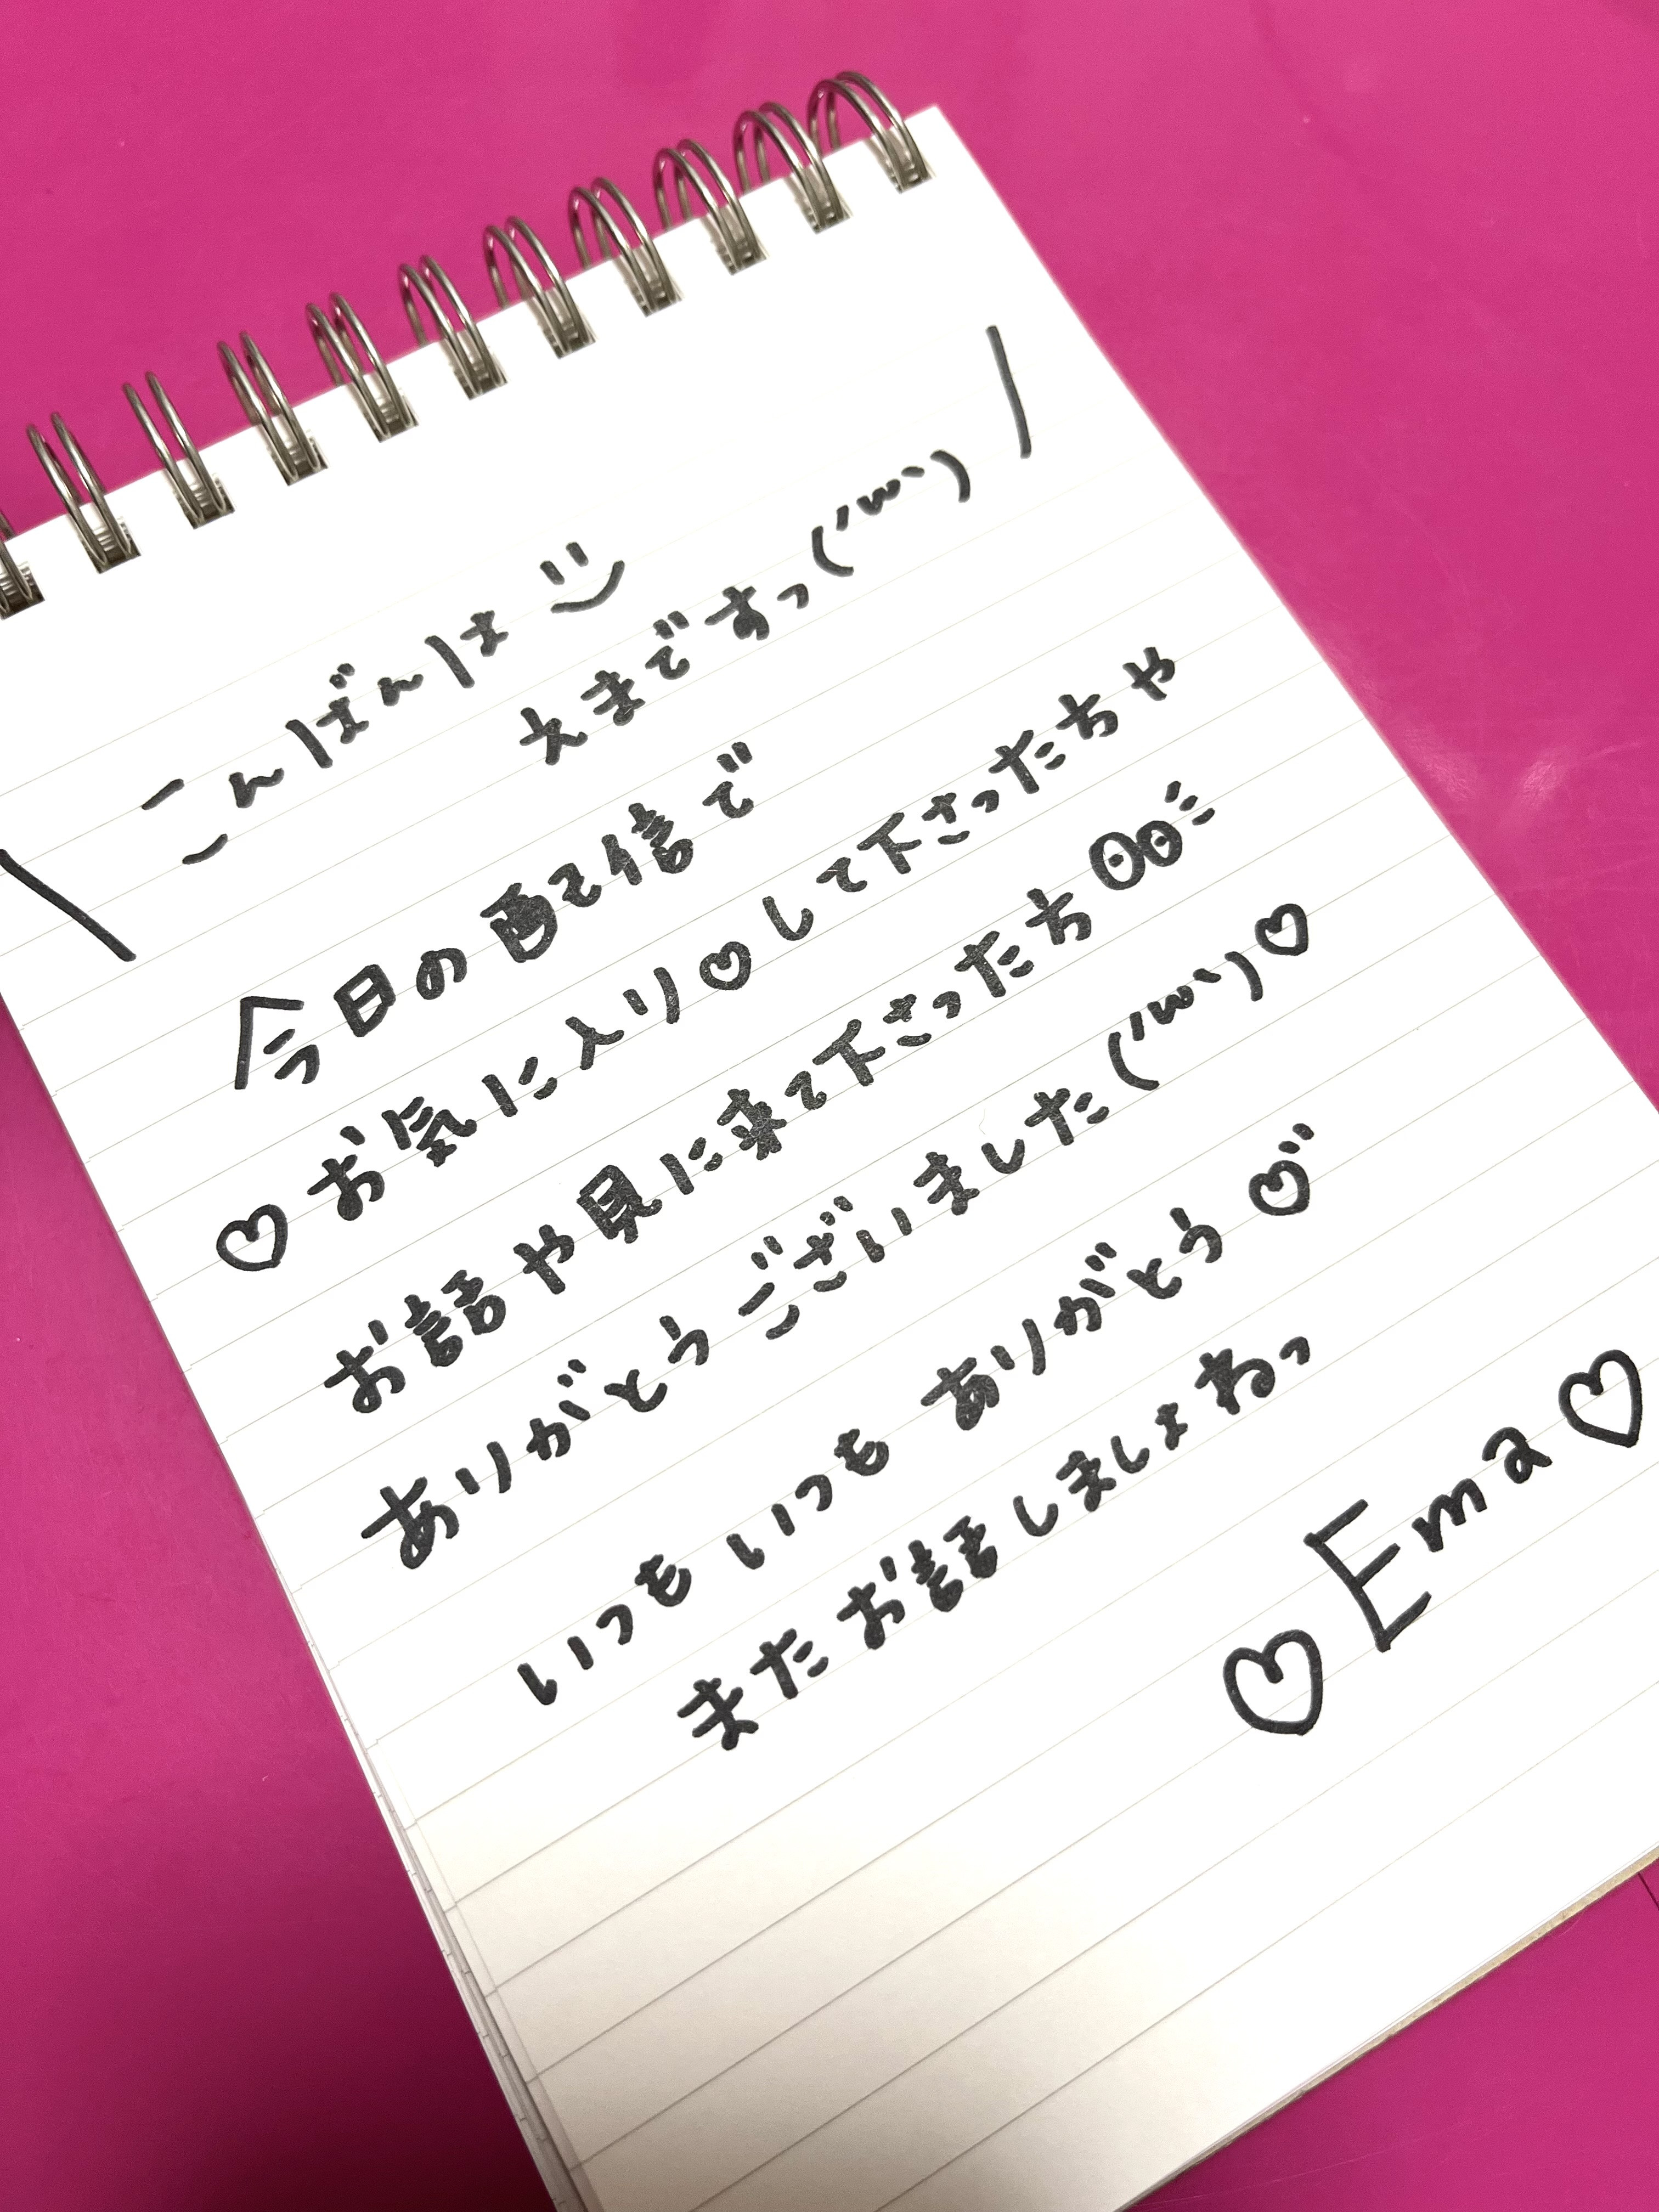 \ こんばんは
えまですっ(´ω`) /
今日の配信で
♡お気に入り♡して下さったちや
お話や見に来て下さった方
ありがとうございました(´ω`)♡
いつもいつもありがとう♡
またお話しましょねっ
♡Ema♡